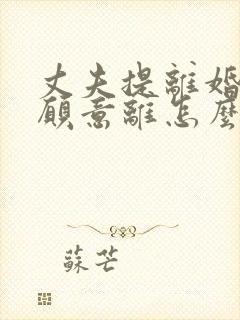 丈夫提離婚
願意離怎麼
蘇芒